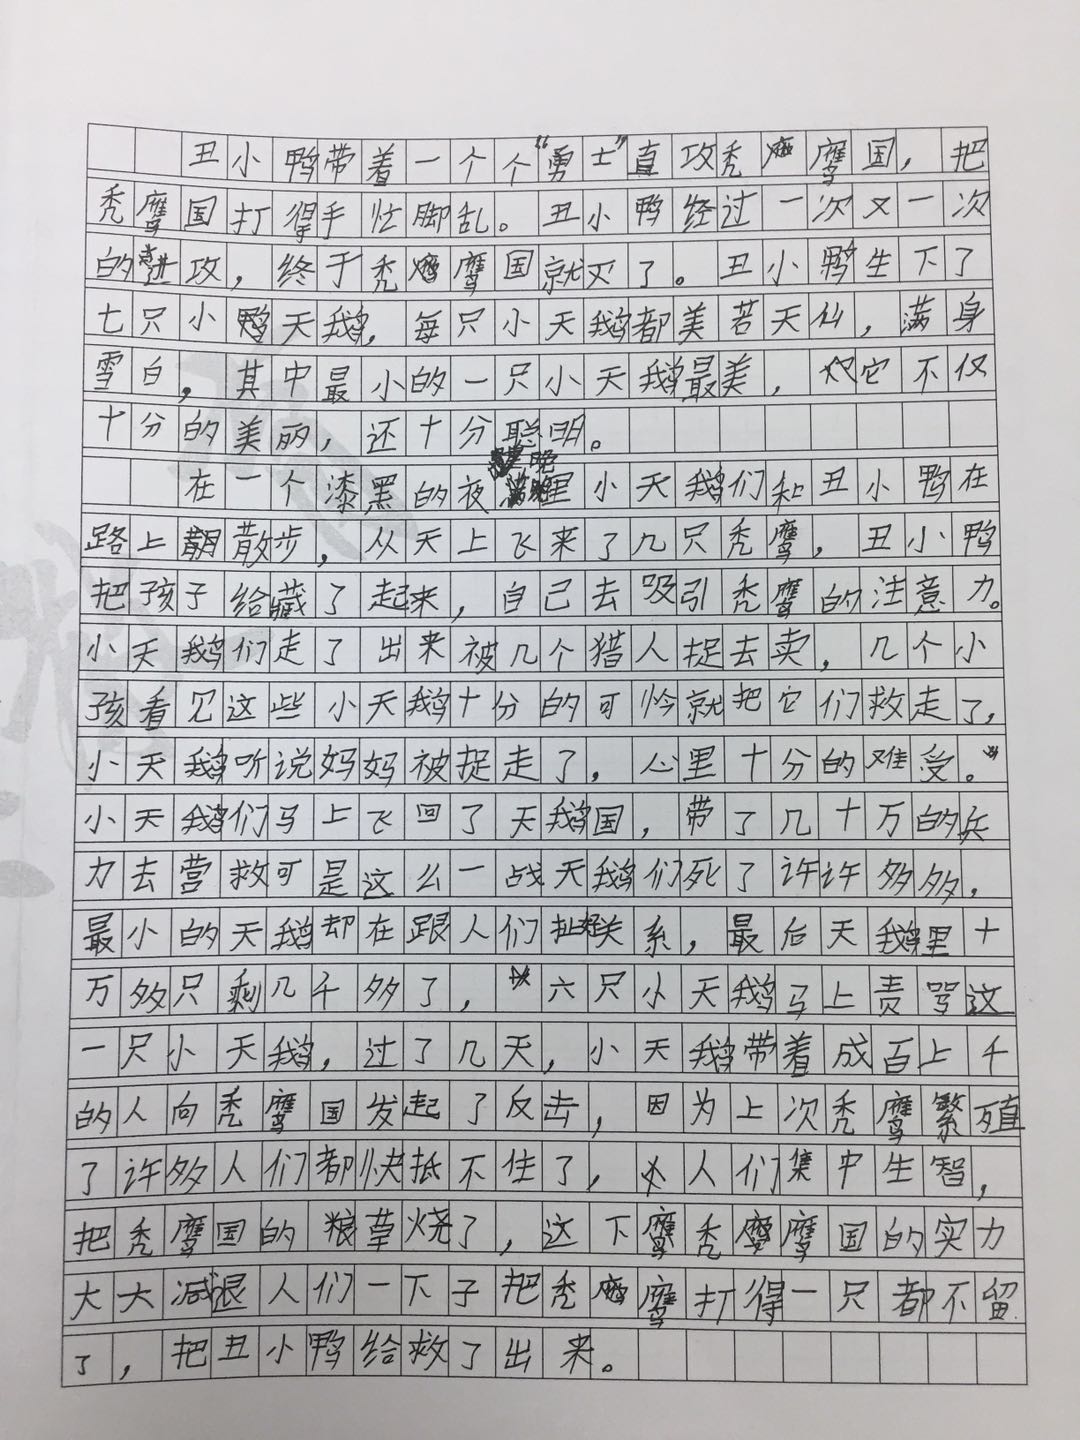 丑小鸭带着一个个“勇士”直攻秃鹰国，把
秃鹰国打得手忙脚乱。丑小鸭经过一次又一次
的进攻，终于秃鹰国就灭了。丑小鸭生下了
七只小天鹅，每只小天鹅都美若天仙，满身
雪白，其中最小的一只小天鹅最美，它不仅
十分的美丽，还十分聪明。
在一个漆黑的夜晚里小天鹅们和丑小鸭在
路上散步，从天上飞来了几只秃鹰，丑小鸭
把孩子给藏了起来，自己去吸引秃鹰的注意力。
小天鹅们走了出来被几个猎人捉去卖，几个小
孩看见这些小天鹅十分的可怜就把它们救走了，
小天鹅听说妈妈被捉走了，心里十分的难受。
小天鹅们马上飞回了天鹅国，带了几十万的兵
力去营救可是这么一战天鹅们死了许许多多，
最小的天鹅却在跟人们扯关系，最后天鹅里十
万多只剩几千多了，六只小天鹅马上责骂这
一只小天鹅，过了几天，小天鹅带着成百上千
的人向秃鹰国发起了反击，因为上次秃鹰繁殖
了许多人们都快抵不住了，人们集中生智，
把秃鹰国的粮草烧了，这下秃鹰国的实力
大大减退人们一下子把秃鹰打得一只都不留
了，把丑小鸭给救了出来。